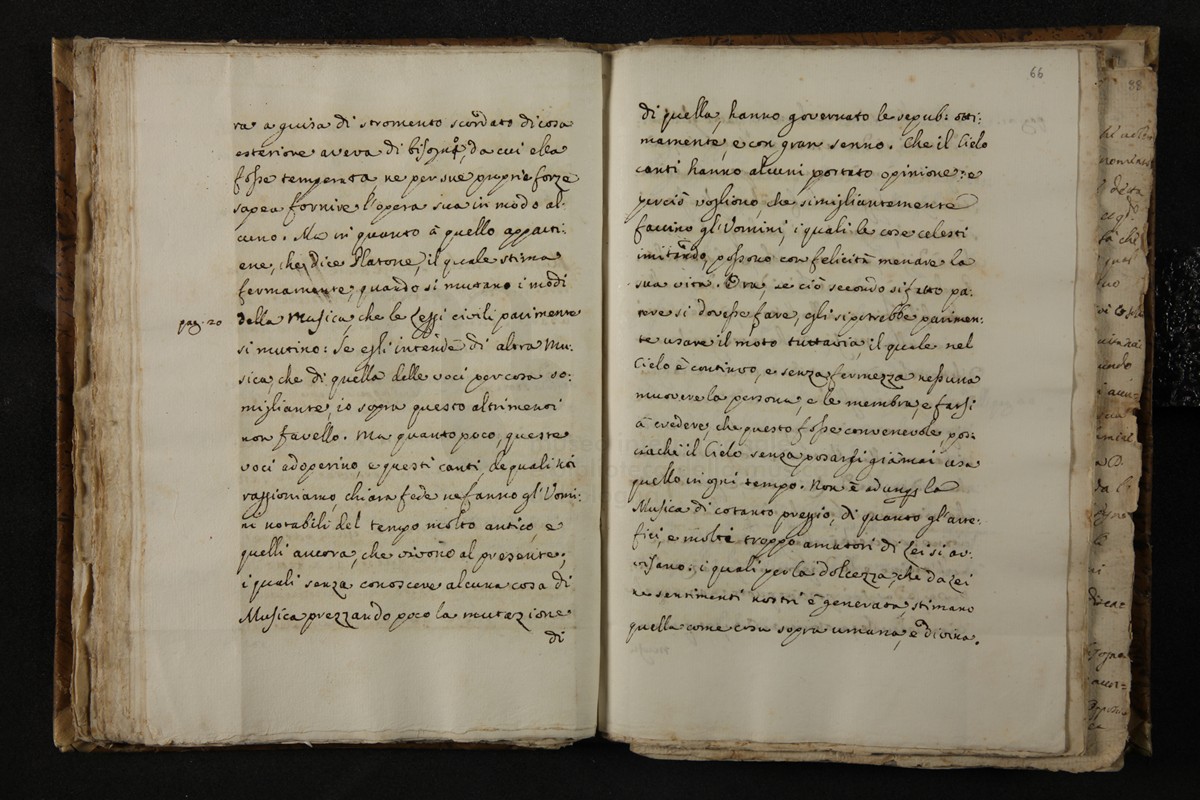 ra a guisa di stromento scordato di cosa
esteriore aveva di bisogno, da cui ella
fosse temperata, ne per sue proprie forze
sapea fornire l'opera sua in modo al-
cuno. Ma in quanto à quello apparti-
ene, che dice Platone, il quale stima
fermamente, quando si mutano i modi
pag. 20
della Musica, che le Leggi civili parimente
si mutino: Se egli intende di altra Mu-
sica, che di quella delle voci per cosa so-
migliante, io sopra questo altrimenti
non favello. Ma quanto poco, queste
voci adoperino, e questi canti, de quali noi
raggioniamo, chiara fede ne fanno gl'Uomi-
ni notabili del tempo molto antico, e
quelli ancora, che vivono al presente,
i quali senza conoscere alcuna cosa di
Musica prezzando poco la mutazione
di
66
di quella, hanno governato le repub: otti-
mamente, e con gran senno. Che il Cielo
canti hanno alcuni portato opinione: e
perciò vogliono, che simigliantemente
faccino gl'Uomini, i quali le cose celesti
imitando, possono con felicità menare la
sua vita. Ora, se ciò secondo sifatto pa-
rere si dovesse fare, egli si potrebbe parimen-
te usare il moto tuttavia, il quale nel
Cielo è continuo, e senza fermezza nessuna
muovere la persona, e le membra, e farsi
à credere, che questo fosse convenevole pos-
ciachè il Cielo senza posarsi giamai usa
quello in ogni tempo. Non è adunq; la
Musica di cotanto preggio, di quanto gl'arte-
fici, e molti troppo amatori di Lei si av-
visano: i quali per la dolcezza, che da Lei
ne sentimenti nostri è generata, stimano
quella come cosa sopra umana, e divina.
88